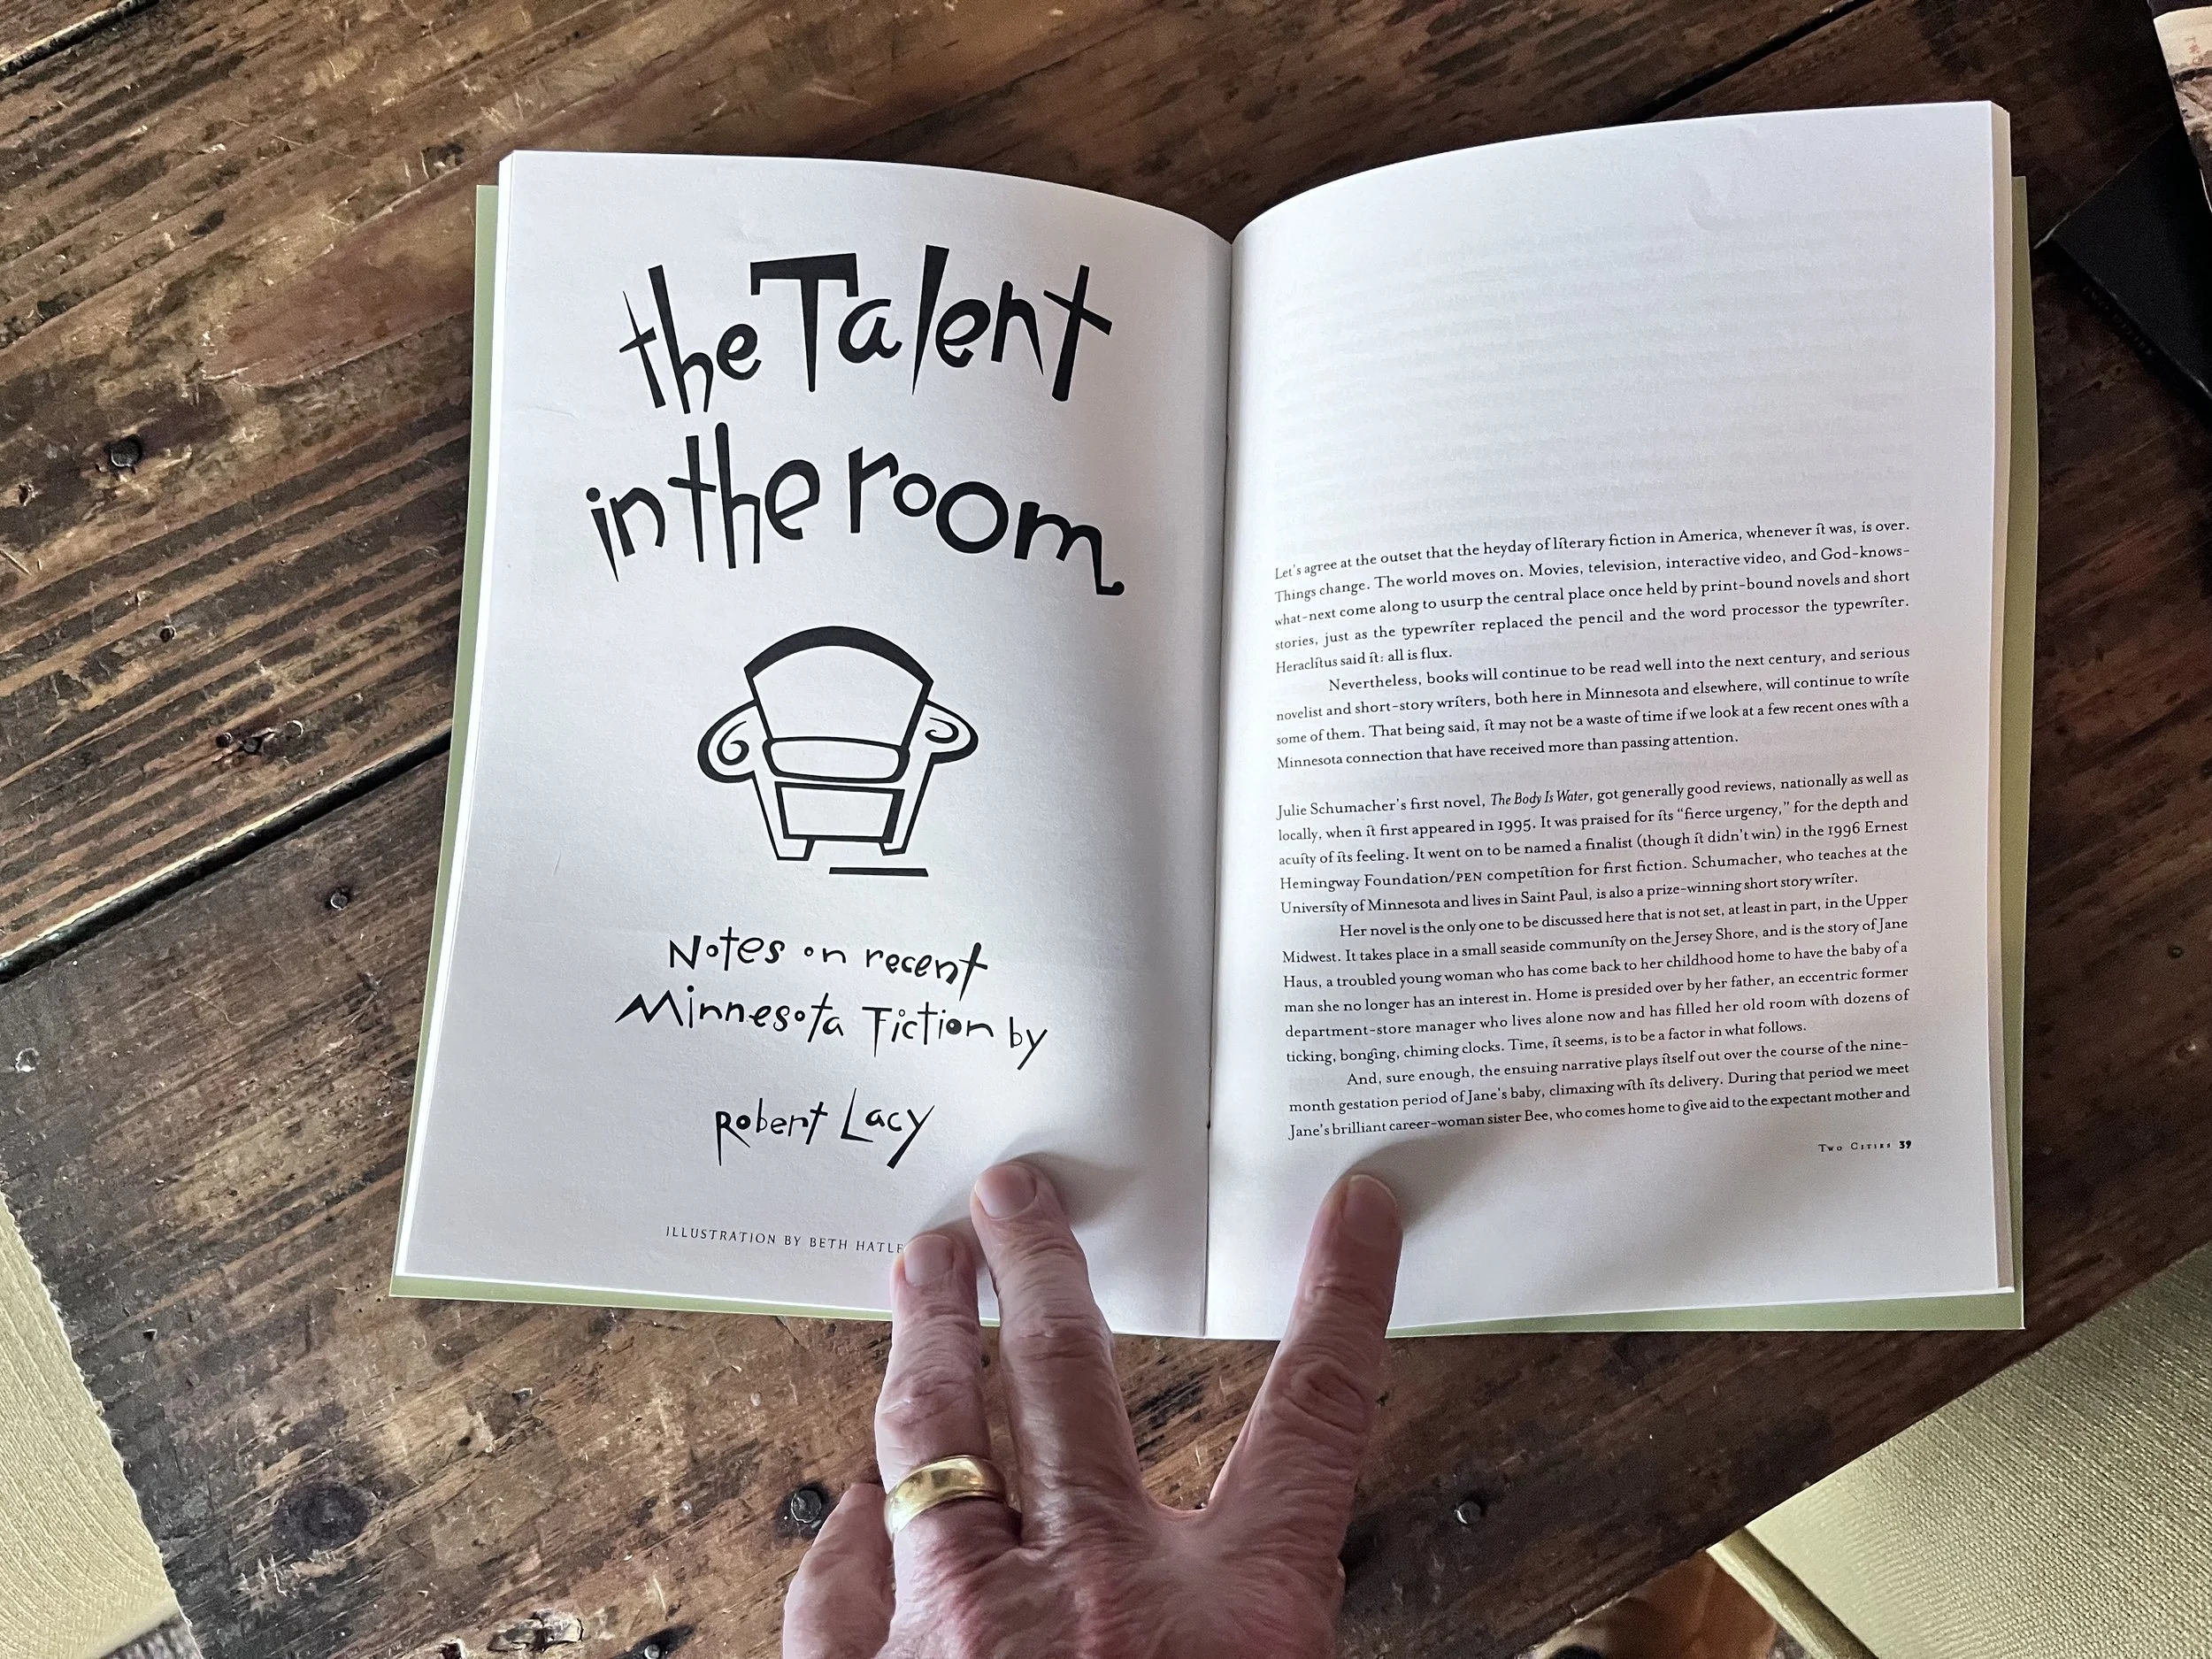 the Talent
in the room
Notes on recent
Minnesota Fiction by
Robert Lacy
ILLUSTRATION BY BETH
Let's agree at the outset that the heyday of literary fiction in America, whenever it was, is over.
Things change. The world moves on. Movies, television, interactive video, and God-knows-
what-next come along to usurp the central place once held by print-bound novels and short
stories, just as the typewriter replaced the pencil and the word processor the typewriter.
Heraclitus said it: all is flux.
Nevertheless, books will continue to be read well into the next century, and serious
novelist and short-story writers, both here in Minnesota and elsewhere, will continue to write
some of them. That being said, it may not be a waste of time if we look at a few recent ones with a
Minnesota connection that have received more than passing attention.
Julie Schumacher's first novel, The Body Is Water, got generally good reviews, nationally as well as
locally, when it first appeared in 1995. It was praised for its "fierce urgency," for the depth and
acuity of its feeling. It went on to be named a finalist (though it didn't win) in the 1996 Ernest
Hemingway Foundation/PEN competition for first fiction. Schumacher, who teaches at the
University of Minnesota and lives in Saint Paul, is also a prize-winning short story writer.
Her novel is the only one to be discussed here that is not set, at least in part, in the Upper
Midwest. It takes place in a small seaside community on the Jersey Shore, and is the story of Jane
Haus, a troubled young woman who has come back to her childhood home to have the baby of a
man she no longer has an interest in. Home is presided over by her father, an eccentric former
department-store manager who lives alone now and has filled her old room with dozens of
ticking, bonging, chiming clocks. Time, it seems, is to be a factor in what follows.
And, sure enough, the ensuing narrative plays itself out over the course of the nine-
month gestation period of Jane's baby, climaxing with its delivery. During that period we meet
Jane's brilliant career-woman sister Bee, who comes home to give aid to the expectant mother and
Two Cities 39